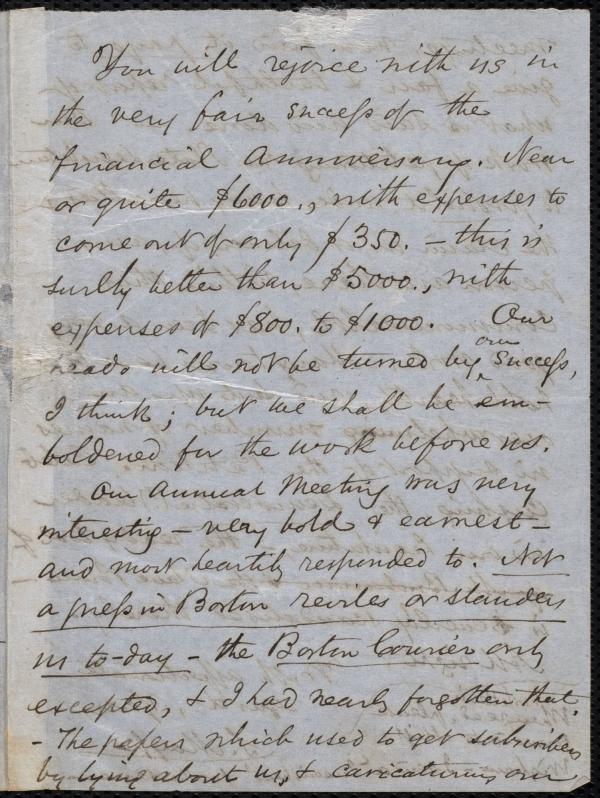 You will rejoice with us in
the very fair success of the
financial Anniversary. Near
or quite $6000., with expenses to
come out of only $350. — this is
surely better than $5000., with
expenses of $800. to $1000. Our
heads will not be turned by our success,
I think; but we shall be em-
boldened for the work before us.
Our Annual Meeting was very
interesting — very bold & earnest —
and most heartily responded to. Not
a press in Boston reviles or slanders
us to-day — the Boston Courier only
excepted, & I had nearly forgotten that.
- The papers which used to get subscribers
by lying about us, & caricaturing our